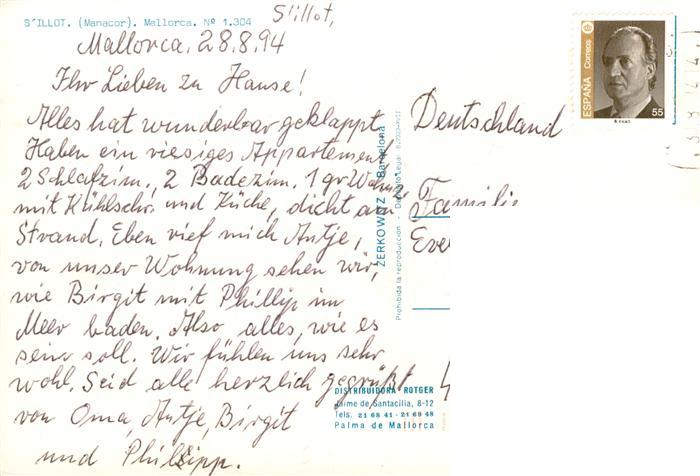 S'ILLOT. (Manacor). Mallorca. Nº 1.304
S'illot,
Mallorca, 28.8.94
Ihr Lieben zu Hause!
Alles hat wunderbar geklappt
Haben ein riesiges Appartement
2 Schlafzim., 2 Badezim. 1 gr. Wohnz.
mit Kühlschr. und Küche, dicht am
Strand. Eben rief mich Antje,
von unser Wohnung sehen wir,
wie Birgit mit Phillip im
Meer baden. Also alles, wie es
sein soll. Wir fühlen uns sehr
wohl. Seid alle herzlich gegrüßt
von Oma, Antje, Birgit
und Phillipp.
ZERKOWITZ - Barcelona
Prohibida la reproducción - Depósito Legal
DISTRIBUIDORA ROTGER
Jaime de Santacilia, 8-12
Tels. 21 68 41 - 21 69 48
Palma de Mallorca
ESPAÑA Correos
55
Deutschland
Familie